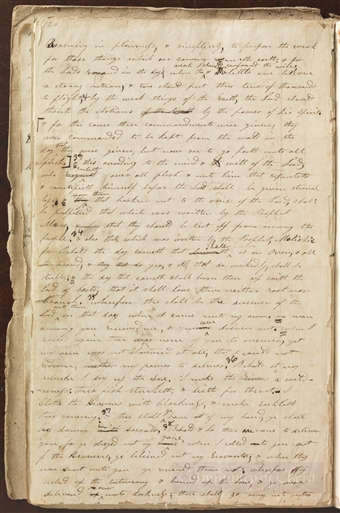 120
Reasoning in plainness, & simplicity to prepare the weak
for those things which are coming on the earth, & for
the Lords errand in the day when the weak shall confound the wise
& the little one become
a strong nation, & two should put their tens of thousands
to flight, & by the weak things of the Earth, the Lord should
thresh the Nations by the power of his spirit
for this cause these commandments were given, they
were commanded to be kept from the world in the
day they were given, but now are to go forth unto all
flesh & this according to the mind & will of the Lord,
who ruleth over all flesh & unto him that repenteth
& sanctifieth himself before the Lord shall be given eternal
life & upon them that hearken not to the voice of the Lord, shall
be fulfilled that which was written by the Prophet
Moses that they should be cut off from among the
people & also that which was written by the Prophet Malachi
for behold the day cometh that shall burn as an oven, & all
the proud, yea, & all that do wickedly, shall be
stubble; & the day that cometh shall burn them up saith the
Lord of hosts, that it shall leave them neither root nor
branch. wherefore this shall be the answer of the
Lord, in that day when I came unto my own, no man
among you received me, & you were driven out. when I
called again there was none of you to answer, yet
my arm was not shortened at all, that I could not
redeem, neither my power to deliver. Behold at my
rebuke I dry up the Sea. I make the rivers a wilderness
their fish stinketh, & dieth for thirst. I
clothe the Heavens with blackness, & make sackcloth
their covering. & this shall ye have of my hand, ye shall
lay down in sorrow. Behold & lo there are none to deliver
you, for ye obeyed not my voice, when I called to you out
of the Heavens, ye believed not my Servants; & when they
were sent unto you ye received them not; wherefore they
sealed up the testimony & bound up the law, & ye were
delivered over unto darkness; these shall go away into outer